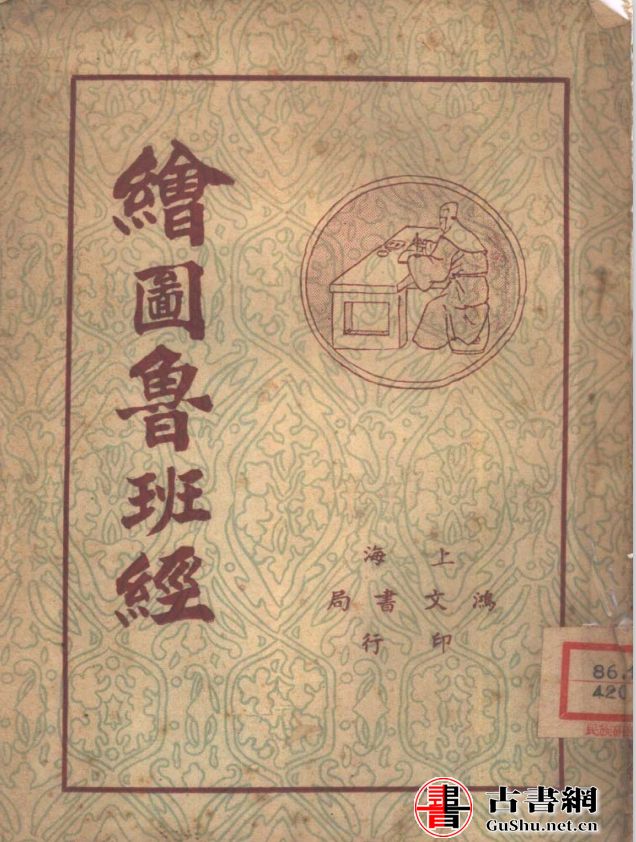 繪圖魯班經
上海
鴻文書局
印行
86.
420
民族
書
古書網
GuShu.net.cn